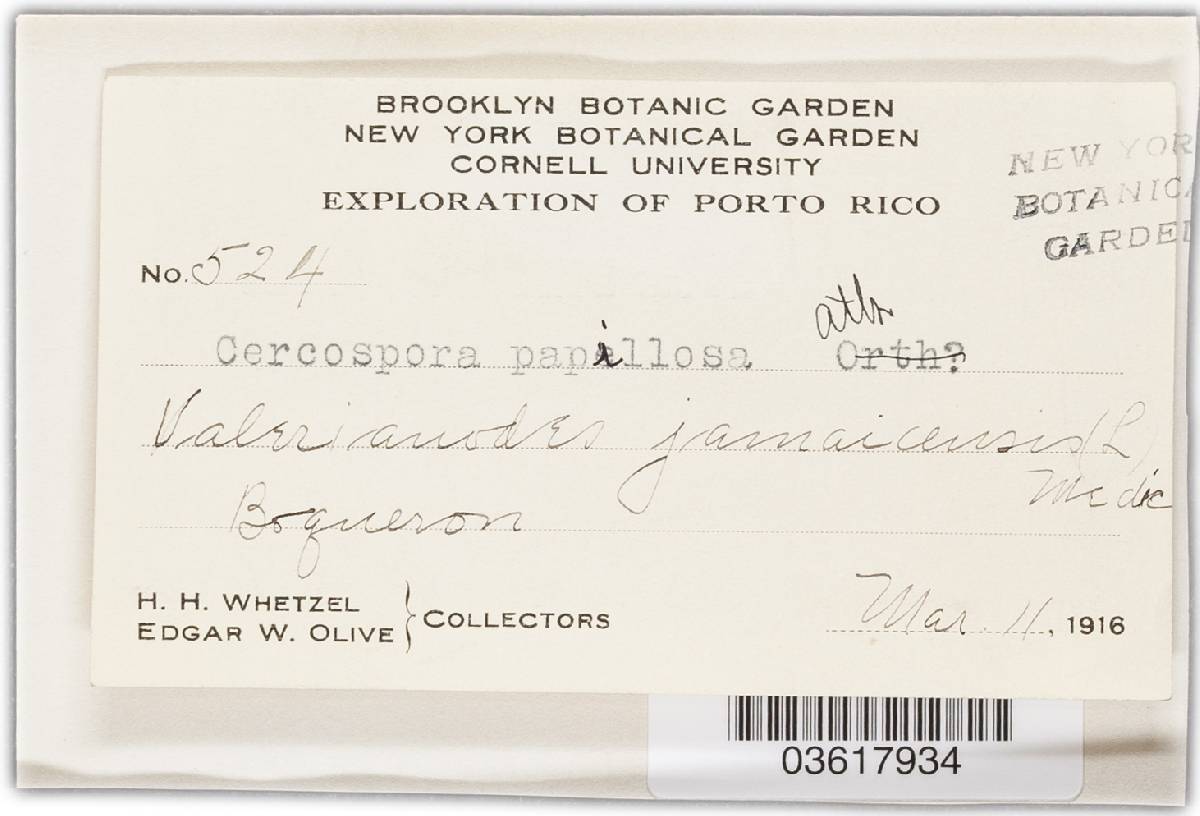 BROOKLYN BOTANIC GARDEN
NEW YORK BOTANICAL GARDEN
CORNELL UNIVERSITY
EXPLORATION OF PORTO RICO
NEW YOR
BOTANICA
GARDEN
No. 524
Cercospora papillosa Orth?
Valerianodes jamaicensis (L)
Medic
Boqueron
H. H. WHETZEL
EDGAR W. OLIVE } COLLECTORS
Mar. 11, 1916
03617934